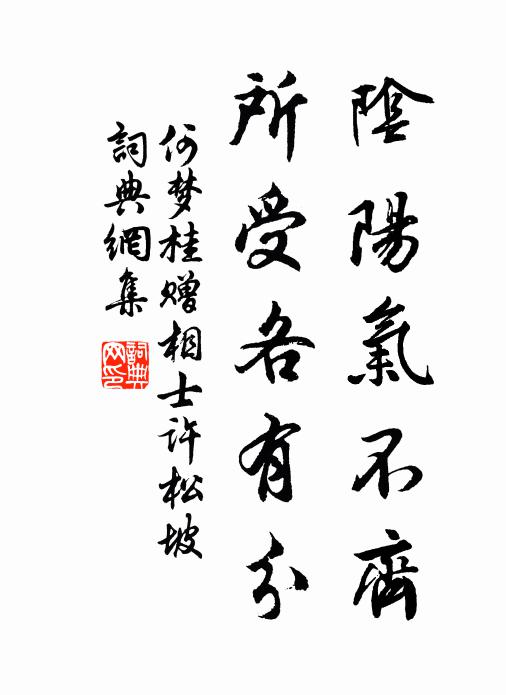 陰陽氣不齊
所受各有分
何梦桂赠相士许松坡
詞典網集
詞典
网印